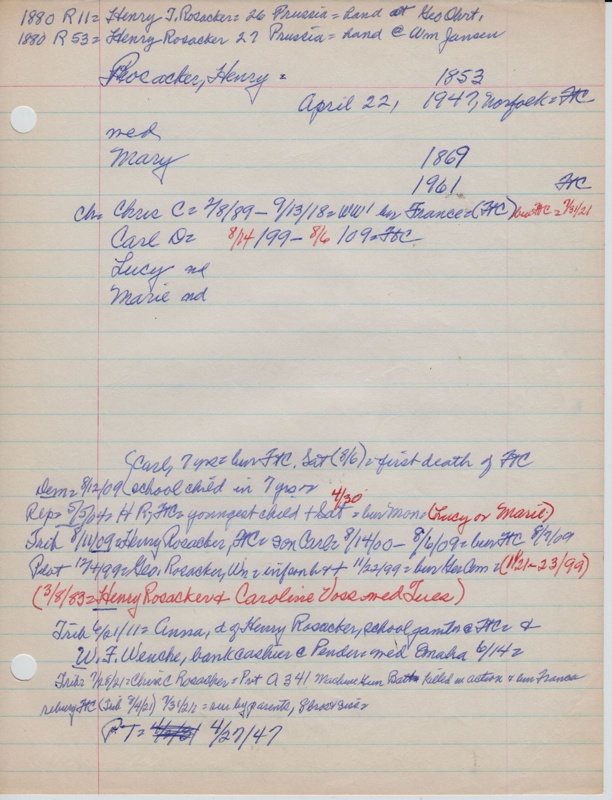 1880 R11 = Henry T. Rosacker = 26 Prussia = Land at Geo Ohrt,
1880 R 53 = Henry Rosacker 27 Prussia = Land @ Wm Jansen
Rosacker, Henry = 1853
April 22, 1947, Norfolk = HC
med
Mary 1869
1961 HC
ch = Chris C = 2/8/89 - 9/13/18 = WW1 bur France = (HC) bur HC = 7/31/21
Carl D = 8/14/99 - 8/6/09 = HC
Lucy nd
Marie nd
(Carl, 7 yrs = bur HC. Sat (8/6) = first death of HC
Dem = 8/12/09 (school child in 7 yrs
4/30
Rep = 5/5/04 = H R, HC = youngest child + Sat = bur Mon = (Lucy or Marie)
Trib 8/11/09 = Henry Rosacker, HC = son Carl = 8/14/00 - 8/6/09 = bur HC 8/7/09
Pilot 12/4/99 = Geo. Rosacker, Wn = infant + 11/22/99 = bur Ger Cem = (11/21 - 23/99)
(3/8/83 = Henry Rosacker & Caroline Voss med Tues)
Trib 6/21/11 = Anna, d of Henry Rosacker, school @ HC = &
W. F. Wenche, bank cashier @ Pender = med Omaha 6/14 =
Trib = 7/28/21 = Chris C Rosacker = Pvt A 341 Machine Gun Batt killed in action & bur France
rebury HC (Trib 8/4/21) 7/31/21 = sur by parents, 8 bro & sis =
PT = 4/27/47